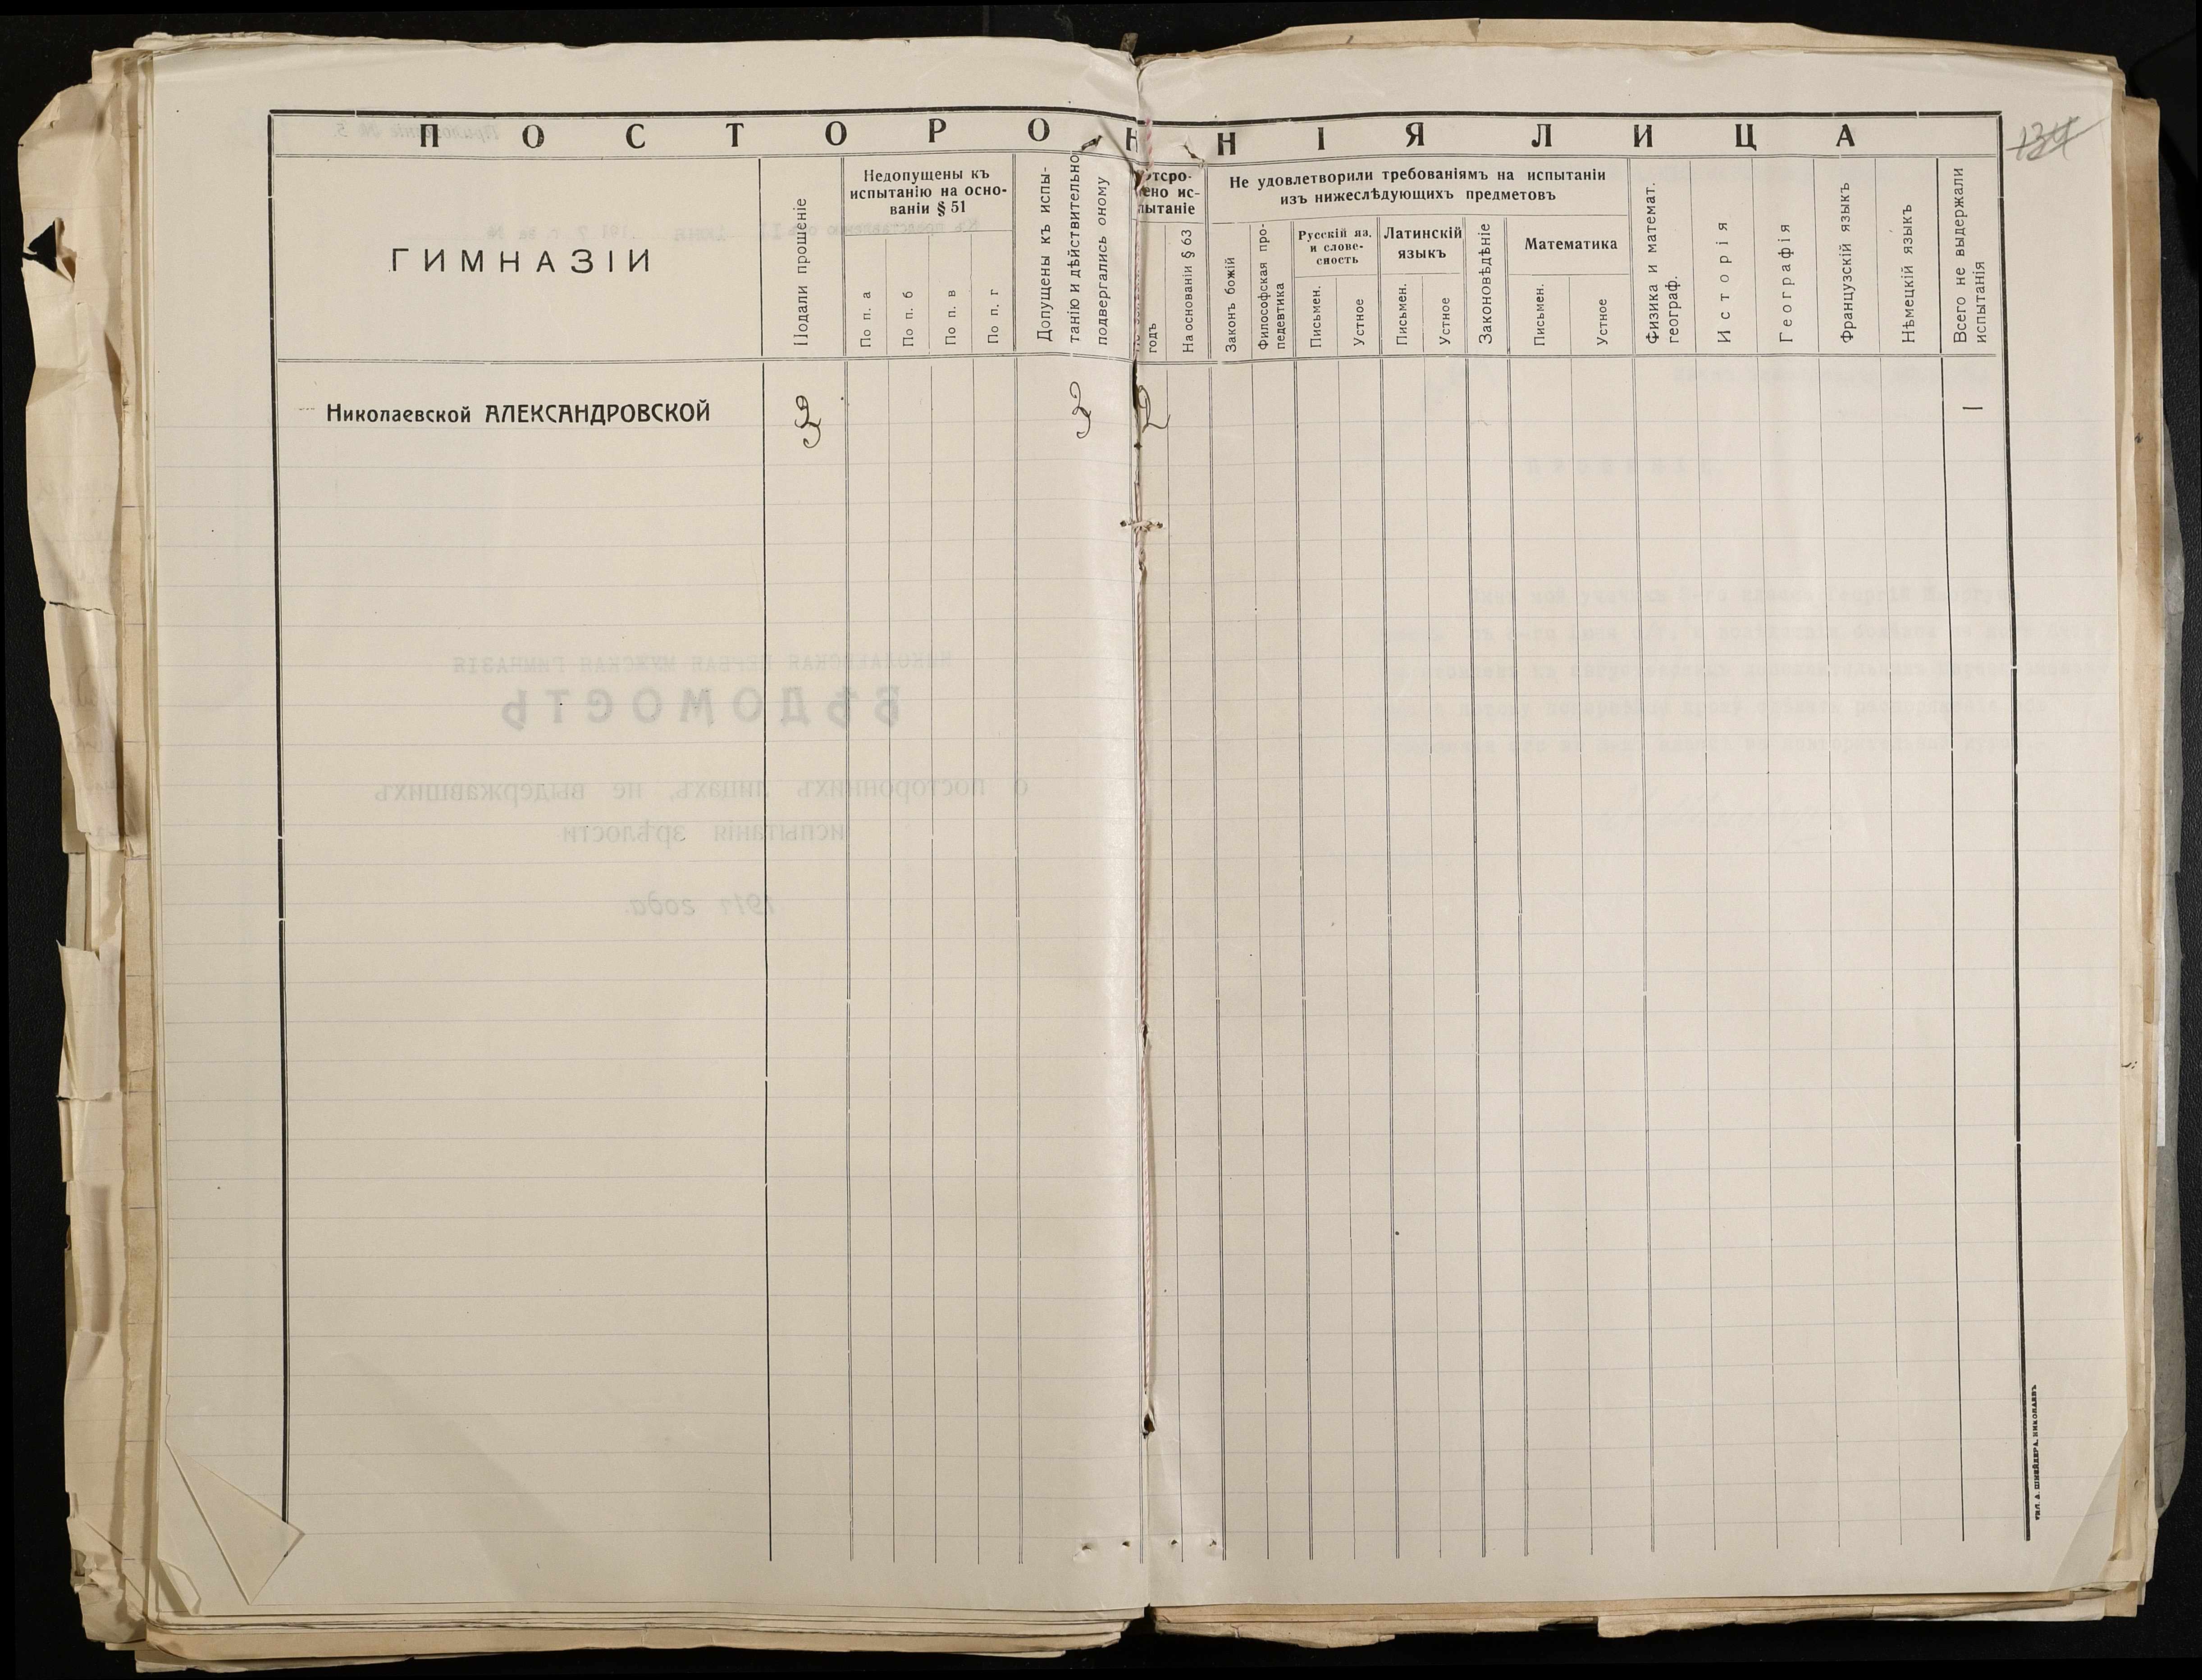 ПОСТОРОННІЯ ЛИЦА
134
ГИМНАЗІИ
Подали прошеніе
Недопущены къ
испытанію на осно-
ваніи § 51
По п. а
По п. б
По п. в
По п. г
Допущены къ испы-
танію и дѣйствительно
подвергались оному
Отсро-
чено ис-
пытаніе
годъ
На основаніи § 63
Не удовлетворили требованіямъ на испытаніи
изъ нижеслѣдующихъ предметовъ
Законъ божій
Философская про-
педевтика
Русскій яз.
и слове-
сность
Письмен.
Устное
Латинскій
языкъ
Письмен.
Устное
Законовѣдѣніе
Математика
Письмен.
Устное
Физика и математ.
географ.
Исторія
Географія
Французскій языкъ
Нѣмецкій языкъ
Всего не выдержали
испытанія
Николаевской АЛЕКСАНДРОВСКОЙ 3 3 2 1
ТИП. А. ШНЕЙДЕРА, НИКОЛАЕВЪ
Приложеніе № 5
НИКОЛАЕВСКАЯ ПЕРВАЯ МУЖСКАЯ ГИМНАЗІЯ
ВѢДОМОСТЬ
о постороннихъ лицахъ, не выдержавшихъ
испытанія зрѣлости